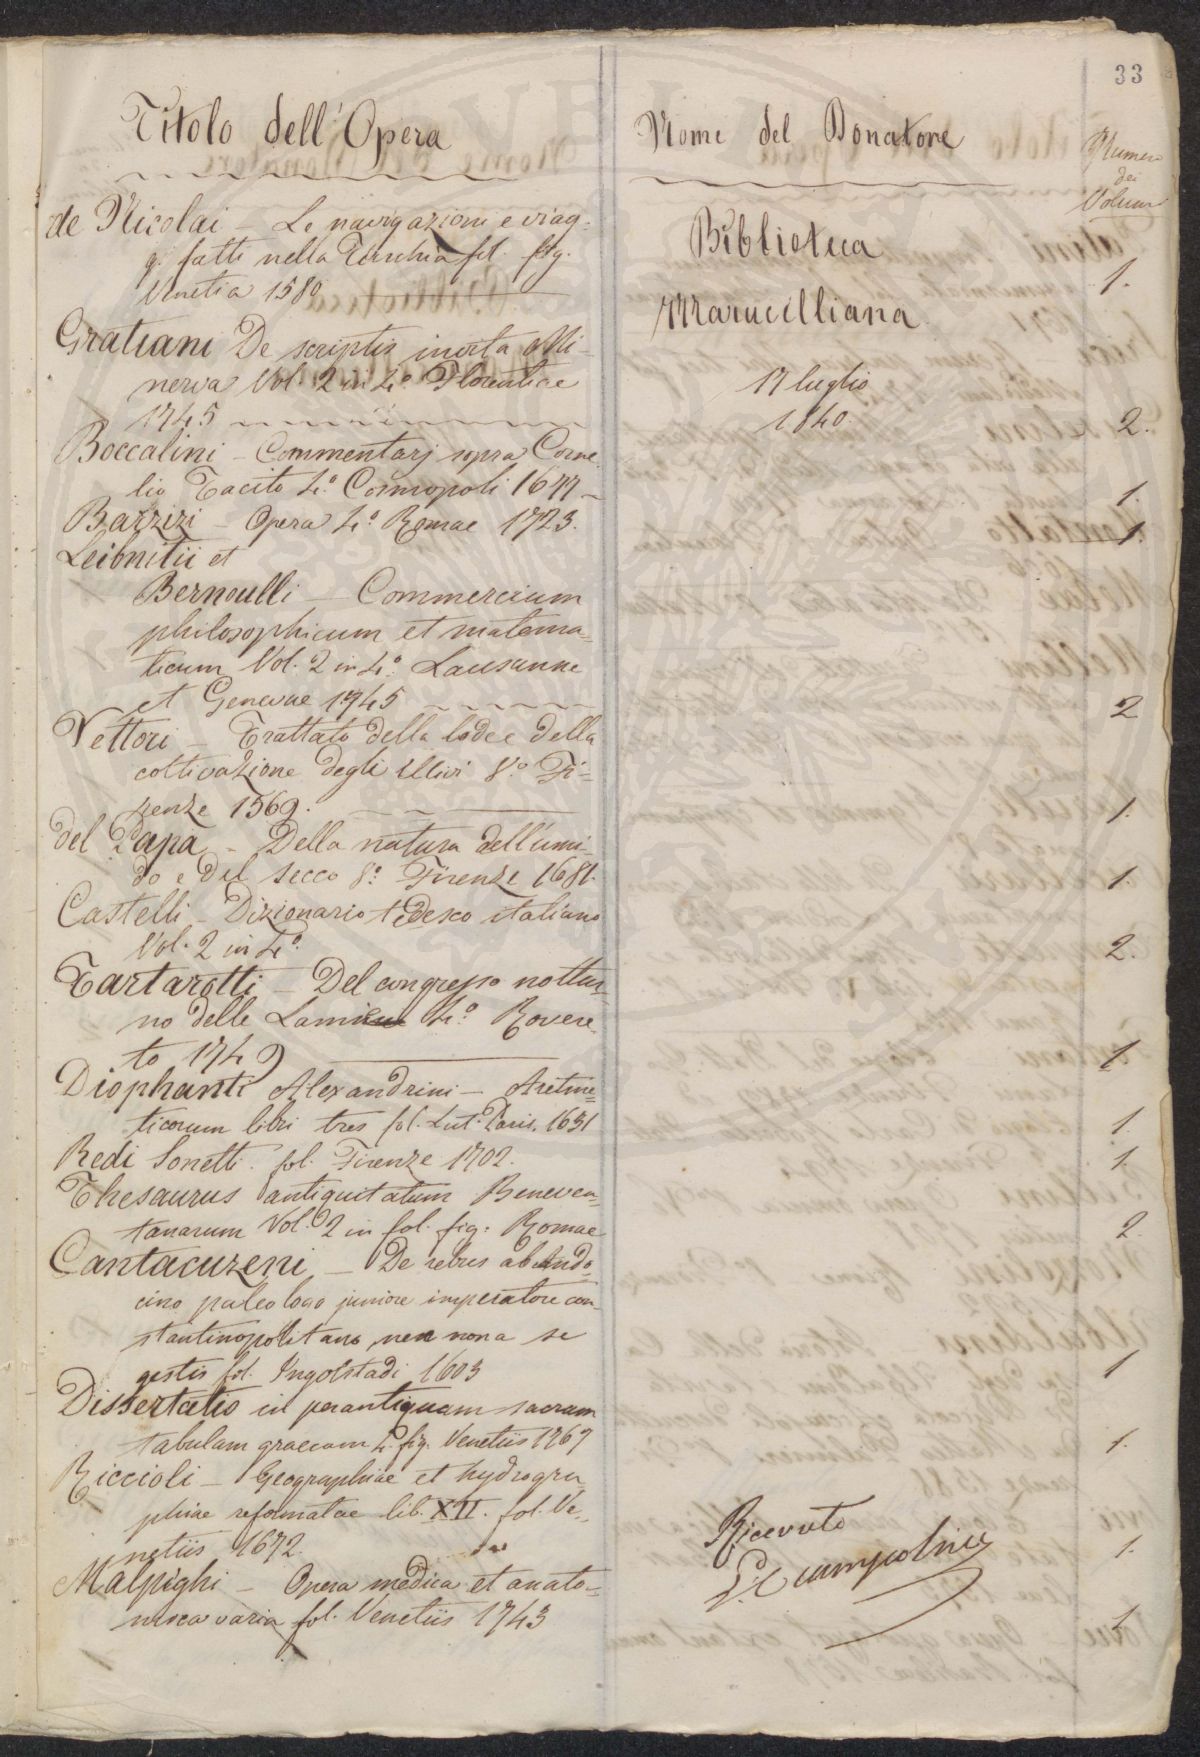 33
Titolo dell'Opera
Nome del Donatore
Numero
dei
Volumi
de Nicolai – Le navigazioni e viag-
gi fatti nella Turchia fol. fig.
Venetia 1580
1.
Biblioteca
Marucilliana
17 luglio
1840.
Gratiani De scriptis inverta Mi-
nerva Vol. 2 in 4.º Florentiae
1745
2.
Boccalini – Commentarj sopra Corne-
lio Tacito 4.º Cosmopoli 1677 –
1.
Barzizi – Opera 4.º Romae 1723.
1.
Leibnitii et
Bernoulli – Commercium
philosophicum et matema-
ticum Vol. 2 in 4.º Lausanne
et Genevae 1745
2
Vettori – Trattato della lode e della
coltivazione degli Ulivi 8.º Fi-
renze 1569.
1.
del Papa – Della natura dell'umi-
do e del secco 8.º Firenze 1681.
1.
Castelli – Dizionario tedesco italiano
Vol. 2 in 4.º
2.
Tartarotti – Del congresso nottur-
no delle Lamie 4.º Rovere-
to 1749
1.
Diophanti Alexandrini – Aretme-
ticorum libri tres fol. Lut. Paris. 1631
1.
Redi Sonetti. fol. Firenze 1702.
1.
Thesaurus antiquitatum Beneven-
tanarum Vol. 2 in fol. fig. Romae
2.
Cantacuzeni – De rebus ab Andro-
cino paleologo juniore imperatore con-
stantinopolitano, nen nona se
gestis fol. Ingolstadi 1603
1
Dissertatio in perantiquam sacram
tabulam graecam 4. fig. Venetiis 1767
1.
Riccioli – Geographiae et hydrogra
phiae reformatae lib. XII. fol. Ve-
netiis 1672.
1.
Malpighi – Opera medica et anato-
mica varia fol. Venetiis 1743
1.
Ricevuto